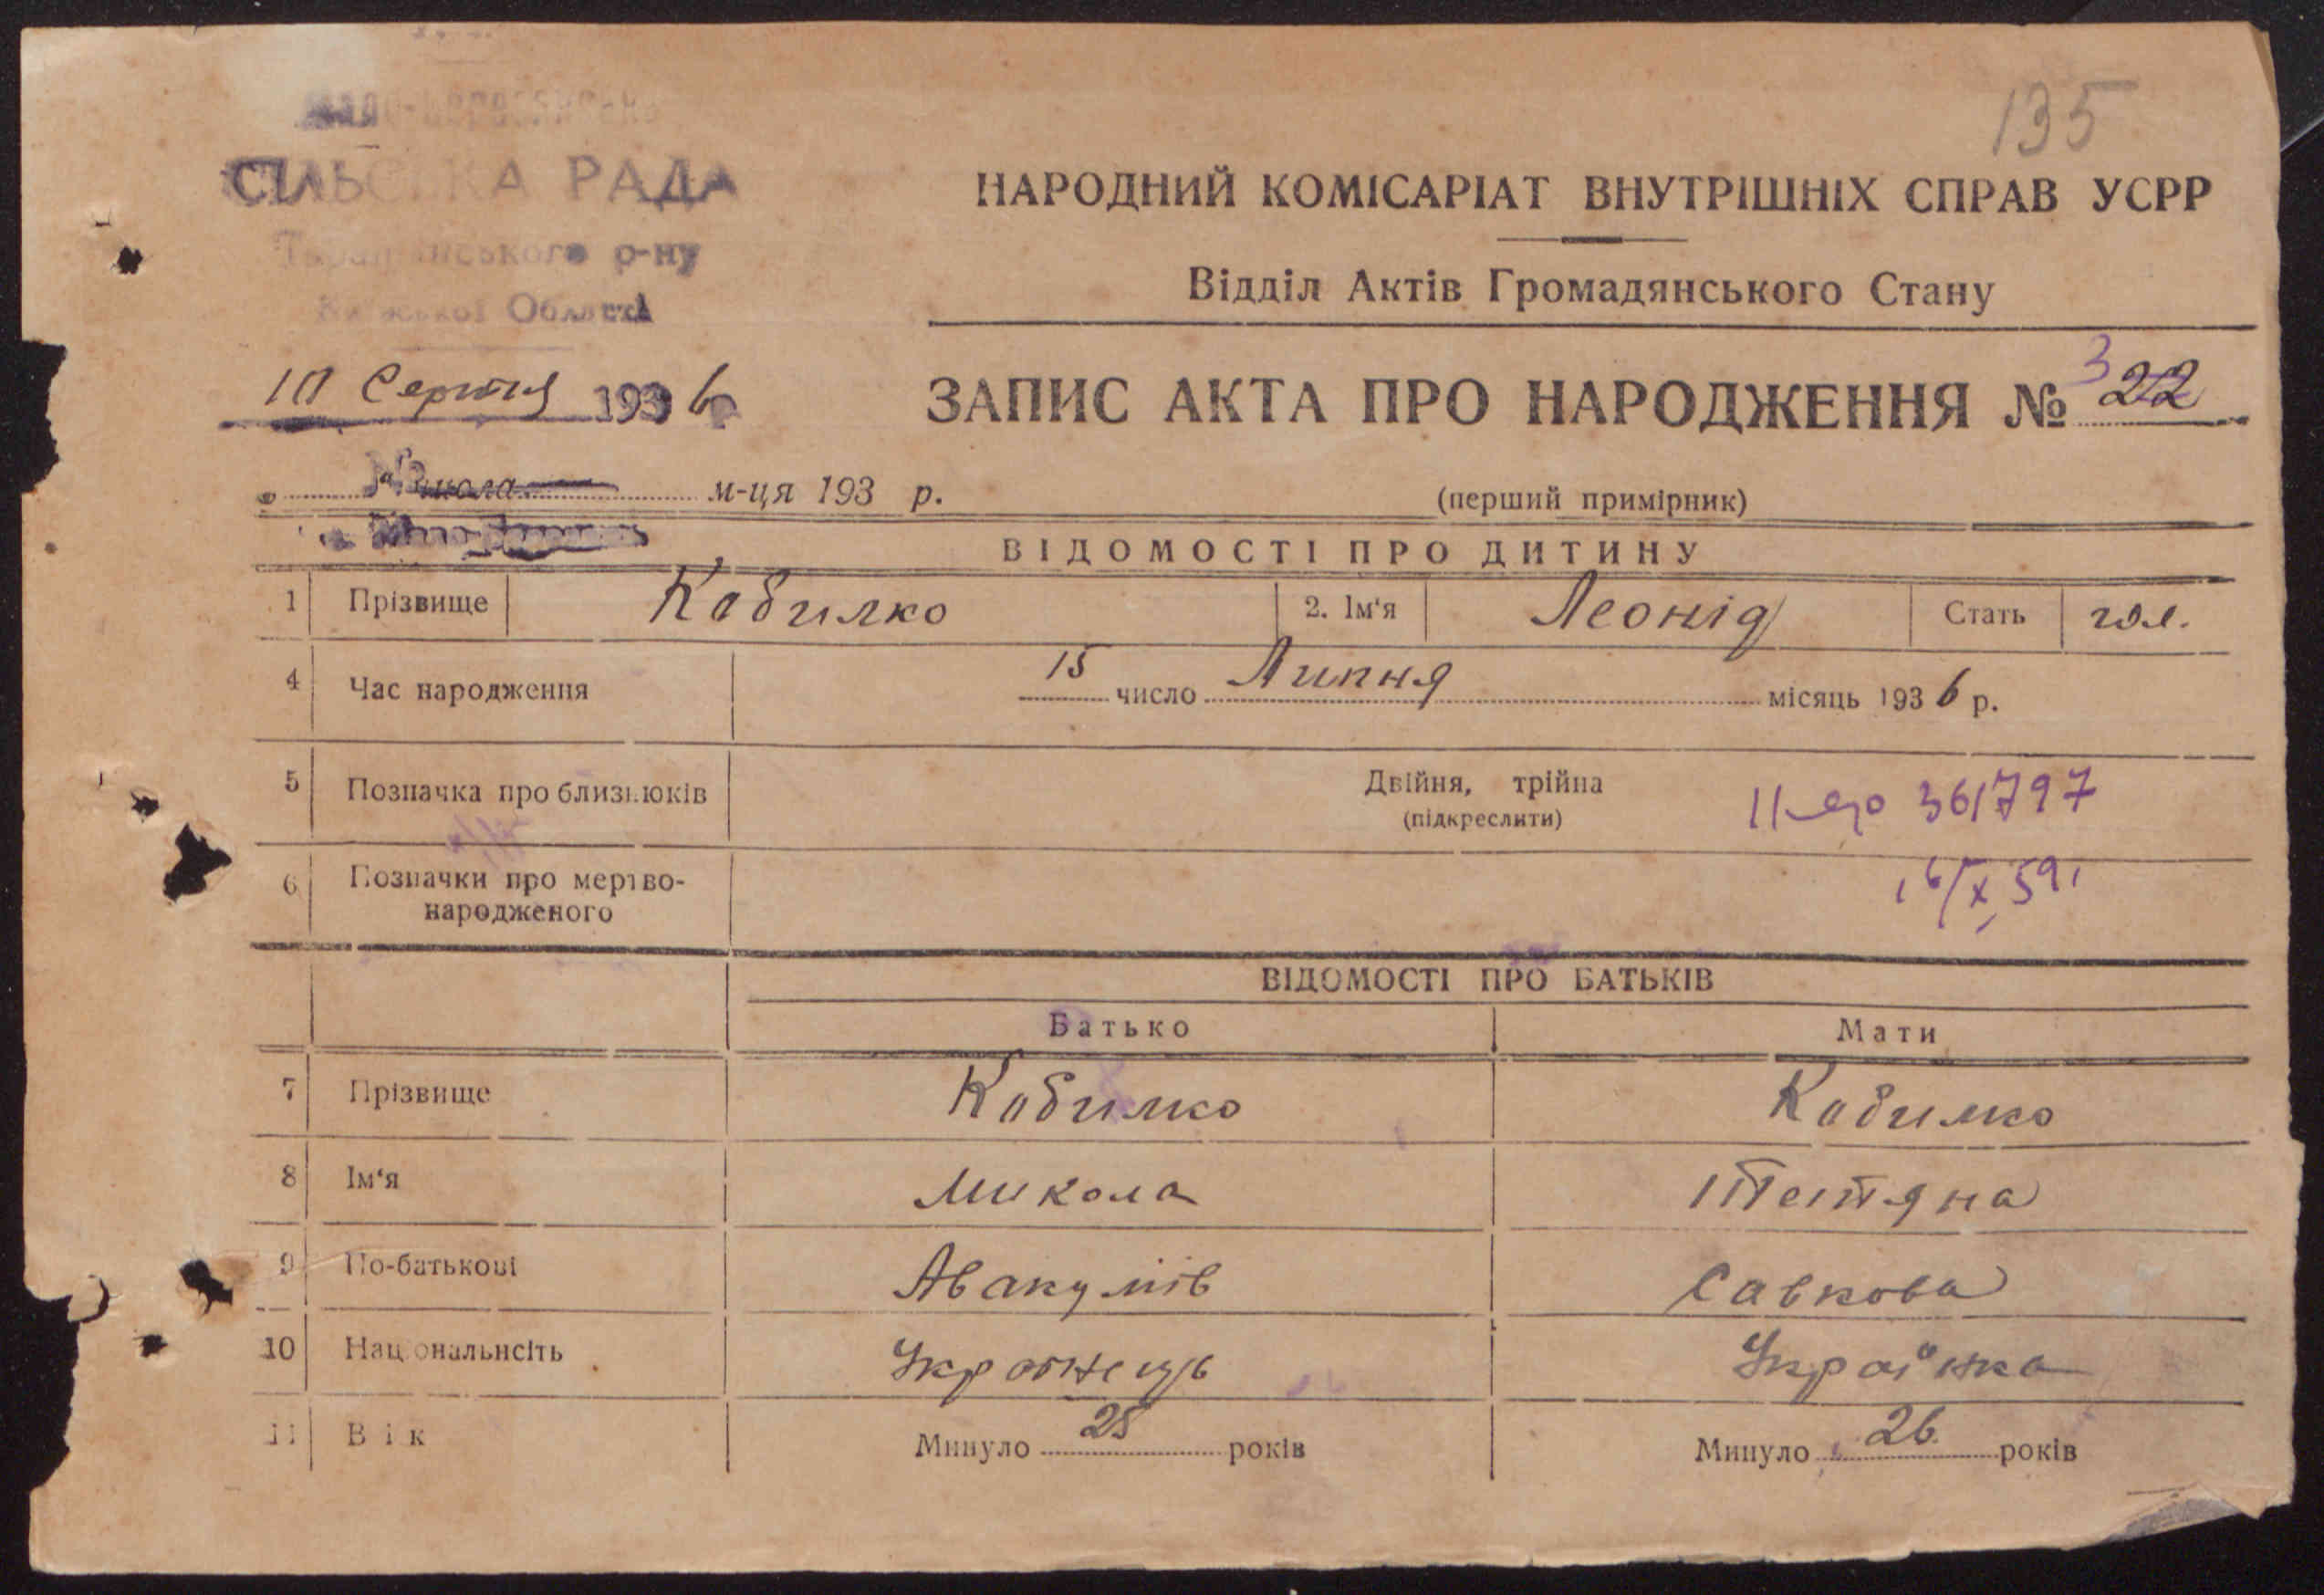 135
СІЛЬСЬКА РАДА
р-ну
Київської Області
Серпня 1936
НАРОДНИЙ КОМІСАРІАТ ВНУТРІШНІХ СПРАВ УСРР
Відділ Актів Громадянського Стану
ЗАПИС АКТА ПРО НАРОДЖЕННЯ № 22
м-ця 193 р.
(перший примірник)
ВІДОМОСТІ ПРО ДИТИНУ
1 Прізвище Кабилко 2. Ім‘я Леонід Стать чол.
4 Час народження 15 число Липня місяць 1936 р.
5 Позначка про близнюків Двійня, трійна
(підкреслити)
361797
6 Позначки про мертво-
народженого
16/X 59
ВІДОМОСТІ ПРО БАТЬКІВ
Батько Мати
7 Прізвище Кабилко Кабилко
8 Ім‘я Микола Тетяна
9 По-батькові Авакумів Савкова
10 Національнсіть Украінець Українка
11 Вік Минуло 25 років Минуло 26 років